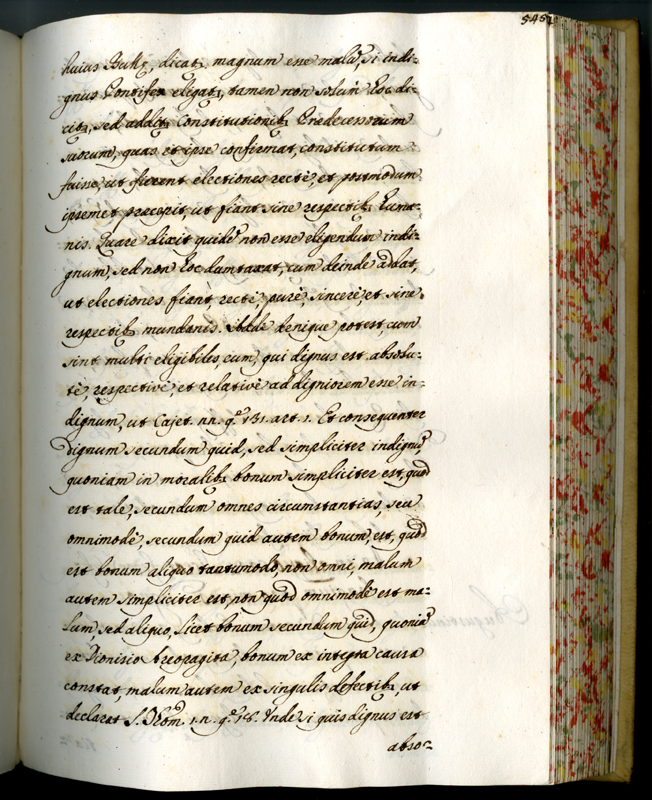 545
huius Bullę, dicatꝫ magnum esse malũ, si indi-
gnus Pontifex eligatꝫ, tamen non solum hoc di-
citꝫ, sed addit, Constitutionibꝫ Predecessorum
suorum, quas et ipse confirmat, constitutum
fuisse, ut fierent electiones rectè, et postmodum
ipsemet praecepit, ut fiant sine respectibꝫ huma-
nis. Quare dixit quidẽ non esse eligendum indi-
gnum, sed non hoc dumtaxat, cum deinde addat,
ut electiones fiant rectè, purè, sincerè, et sine
respectibꝫ mundanis. denique potest, cum
sint multi eligibiles, eum, qui dignus est absolu-
tè, respectivè, et relativè ad digniorem esse in-
dignum, ut Cajet. nn. q.ᵉ 131. art. 1. Et consequenter
dignum secundum quid, sed simpliciter indignũ,
quoniam in moralibꝫ bonum simpliciter est, quod
est tale, secundum omnes circumstantias, seu
omnimodè, secundum quid autem bonum, est, quod
est bonum aliquo tantumodo, non omni, malum
autem simpliciter est, non quod omnimodè est ma-
lum, sed aliquo, licet bonum secundum quid, quoniã
ex Dionisio Areopagita, bonum ex integra causa
constat, malum autem ex singulis defectibꝫ, ut
declarat S. Thom. 1. n. q.ᵉ 18. Unde si quis dignus est
abso-